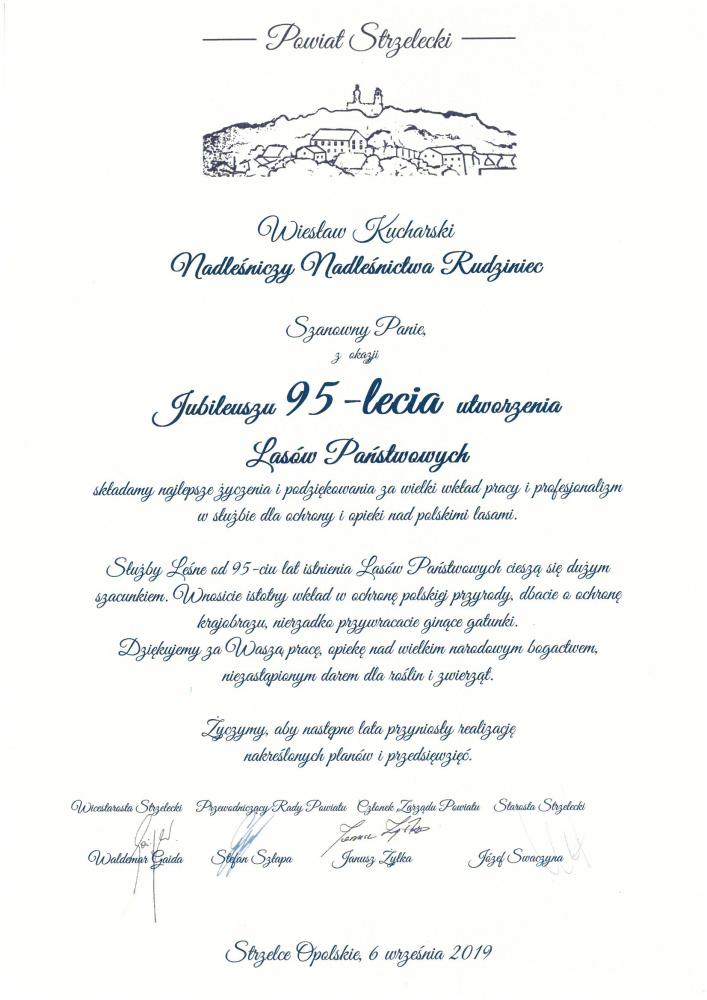 Powiat Strzelecki
Wiesław Kucharski
Nadleśniczy Nadleśnictwa Rudziniec
Szanowny Panie,
z okazji
Jubileuszu 95-lecia utworzenia
Lasów Państwowych
składamy najlepsze życzenia i podziękowania za wielki wkład pracy i profesjonalizm
w służbie dla ochrony i opieki nad polskimi lasami.
Służby Leśne od 95-ciu lat istnienia Lasów Państwowych cieszą się dużym
szacunkiem. Wnosicie istotny wkład w ochronę polskiej przyrody, dbacie o ochronę
krajobrazu, nierzadko przywracacie ginące gatunki.
Dziękujemy za Waszą pracę, opiekę nad wielkim narodowym bogactwem,
niezastąpionym darem dla roślin i zwierząt.
Życzymy, aby następne lata przyniosły realizację
nakreślonych planów i przedsięwzięć.
Wicestarosta Strzelecki Przewodniczący Rady Powiatu Członek Zarządu Powiatu Starosta Strzelecki
Janusz Żyłka
Waldemar Gaida Stefan Szłapa Janusz Żyłka Józef Swaczyna
Strzelce Opolskie, 6 września 2019